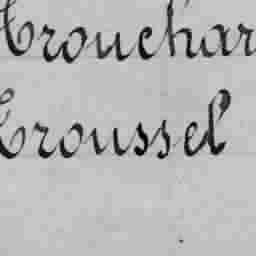 Trouchar
Troussel